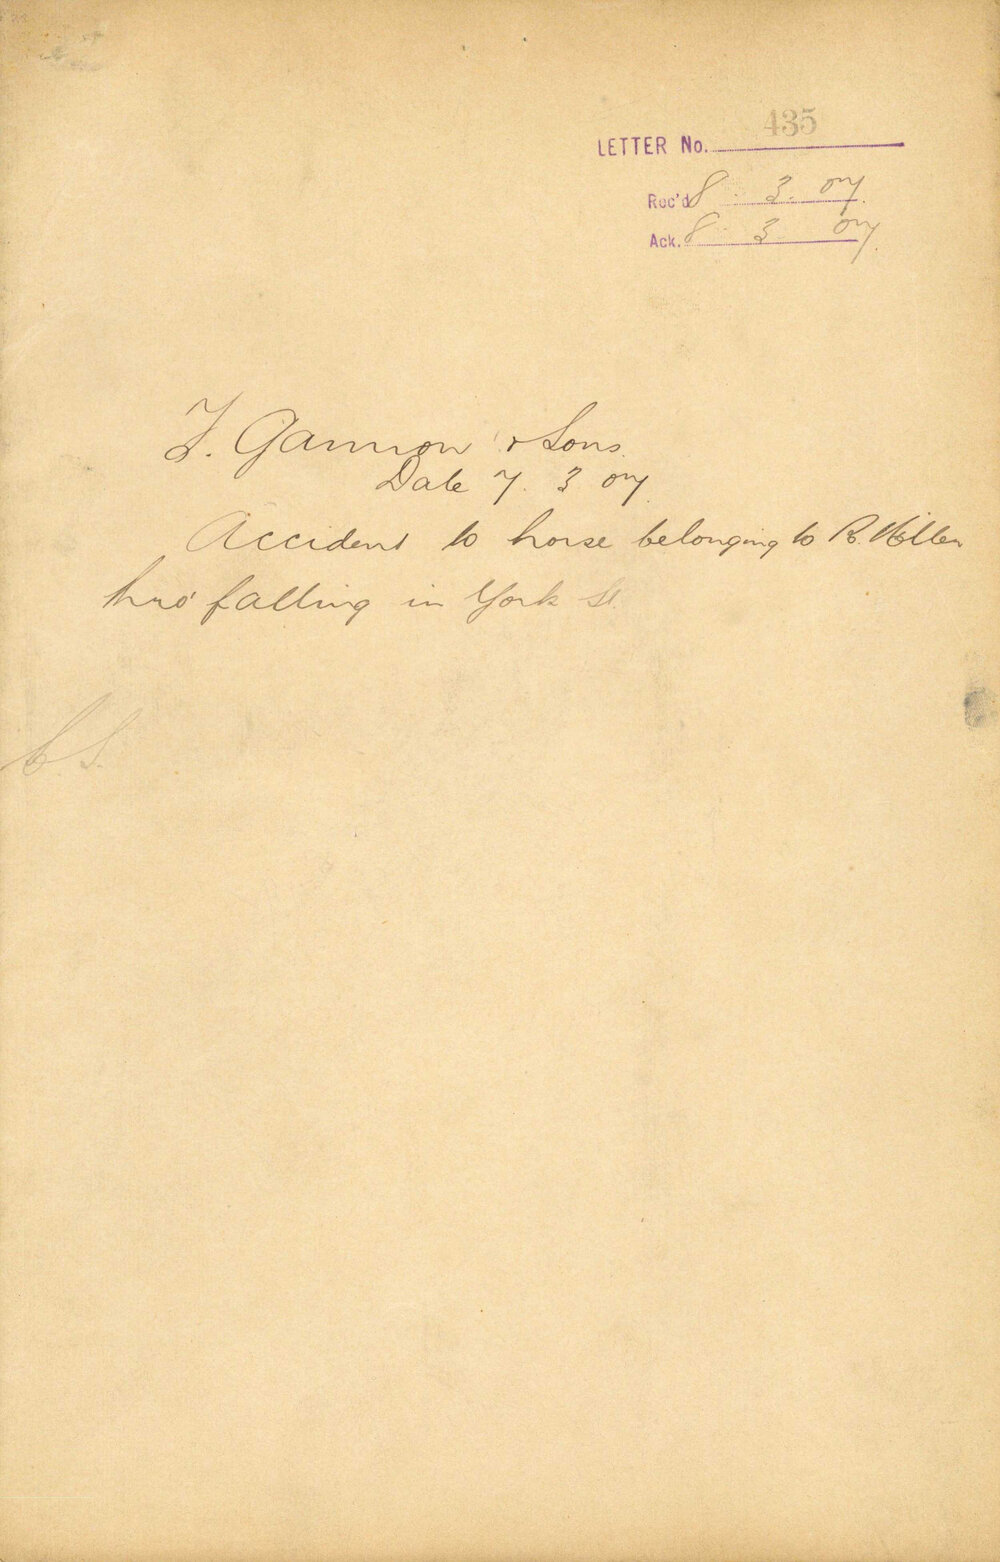 LETTER No. 435
Rec'd 8. 3. 07.
Ack. 8. 3. 07.
F. Gannon & Sons.
Date 7. 3 07.
Accident to horse belonging to R.
thro' falling in York St.